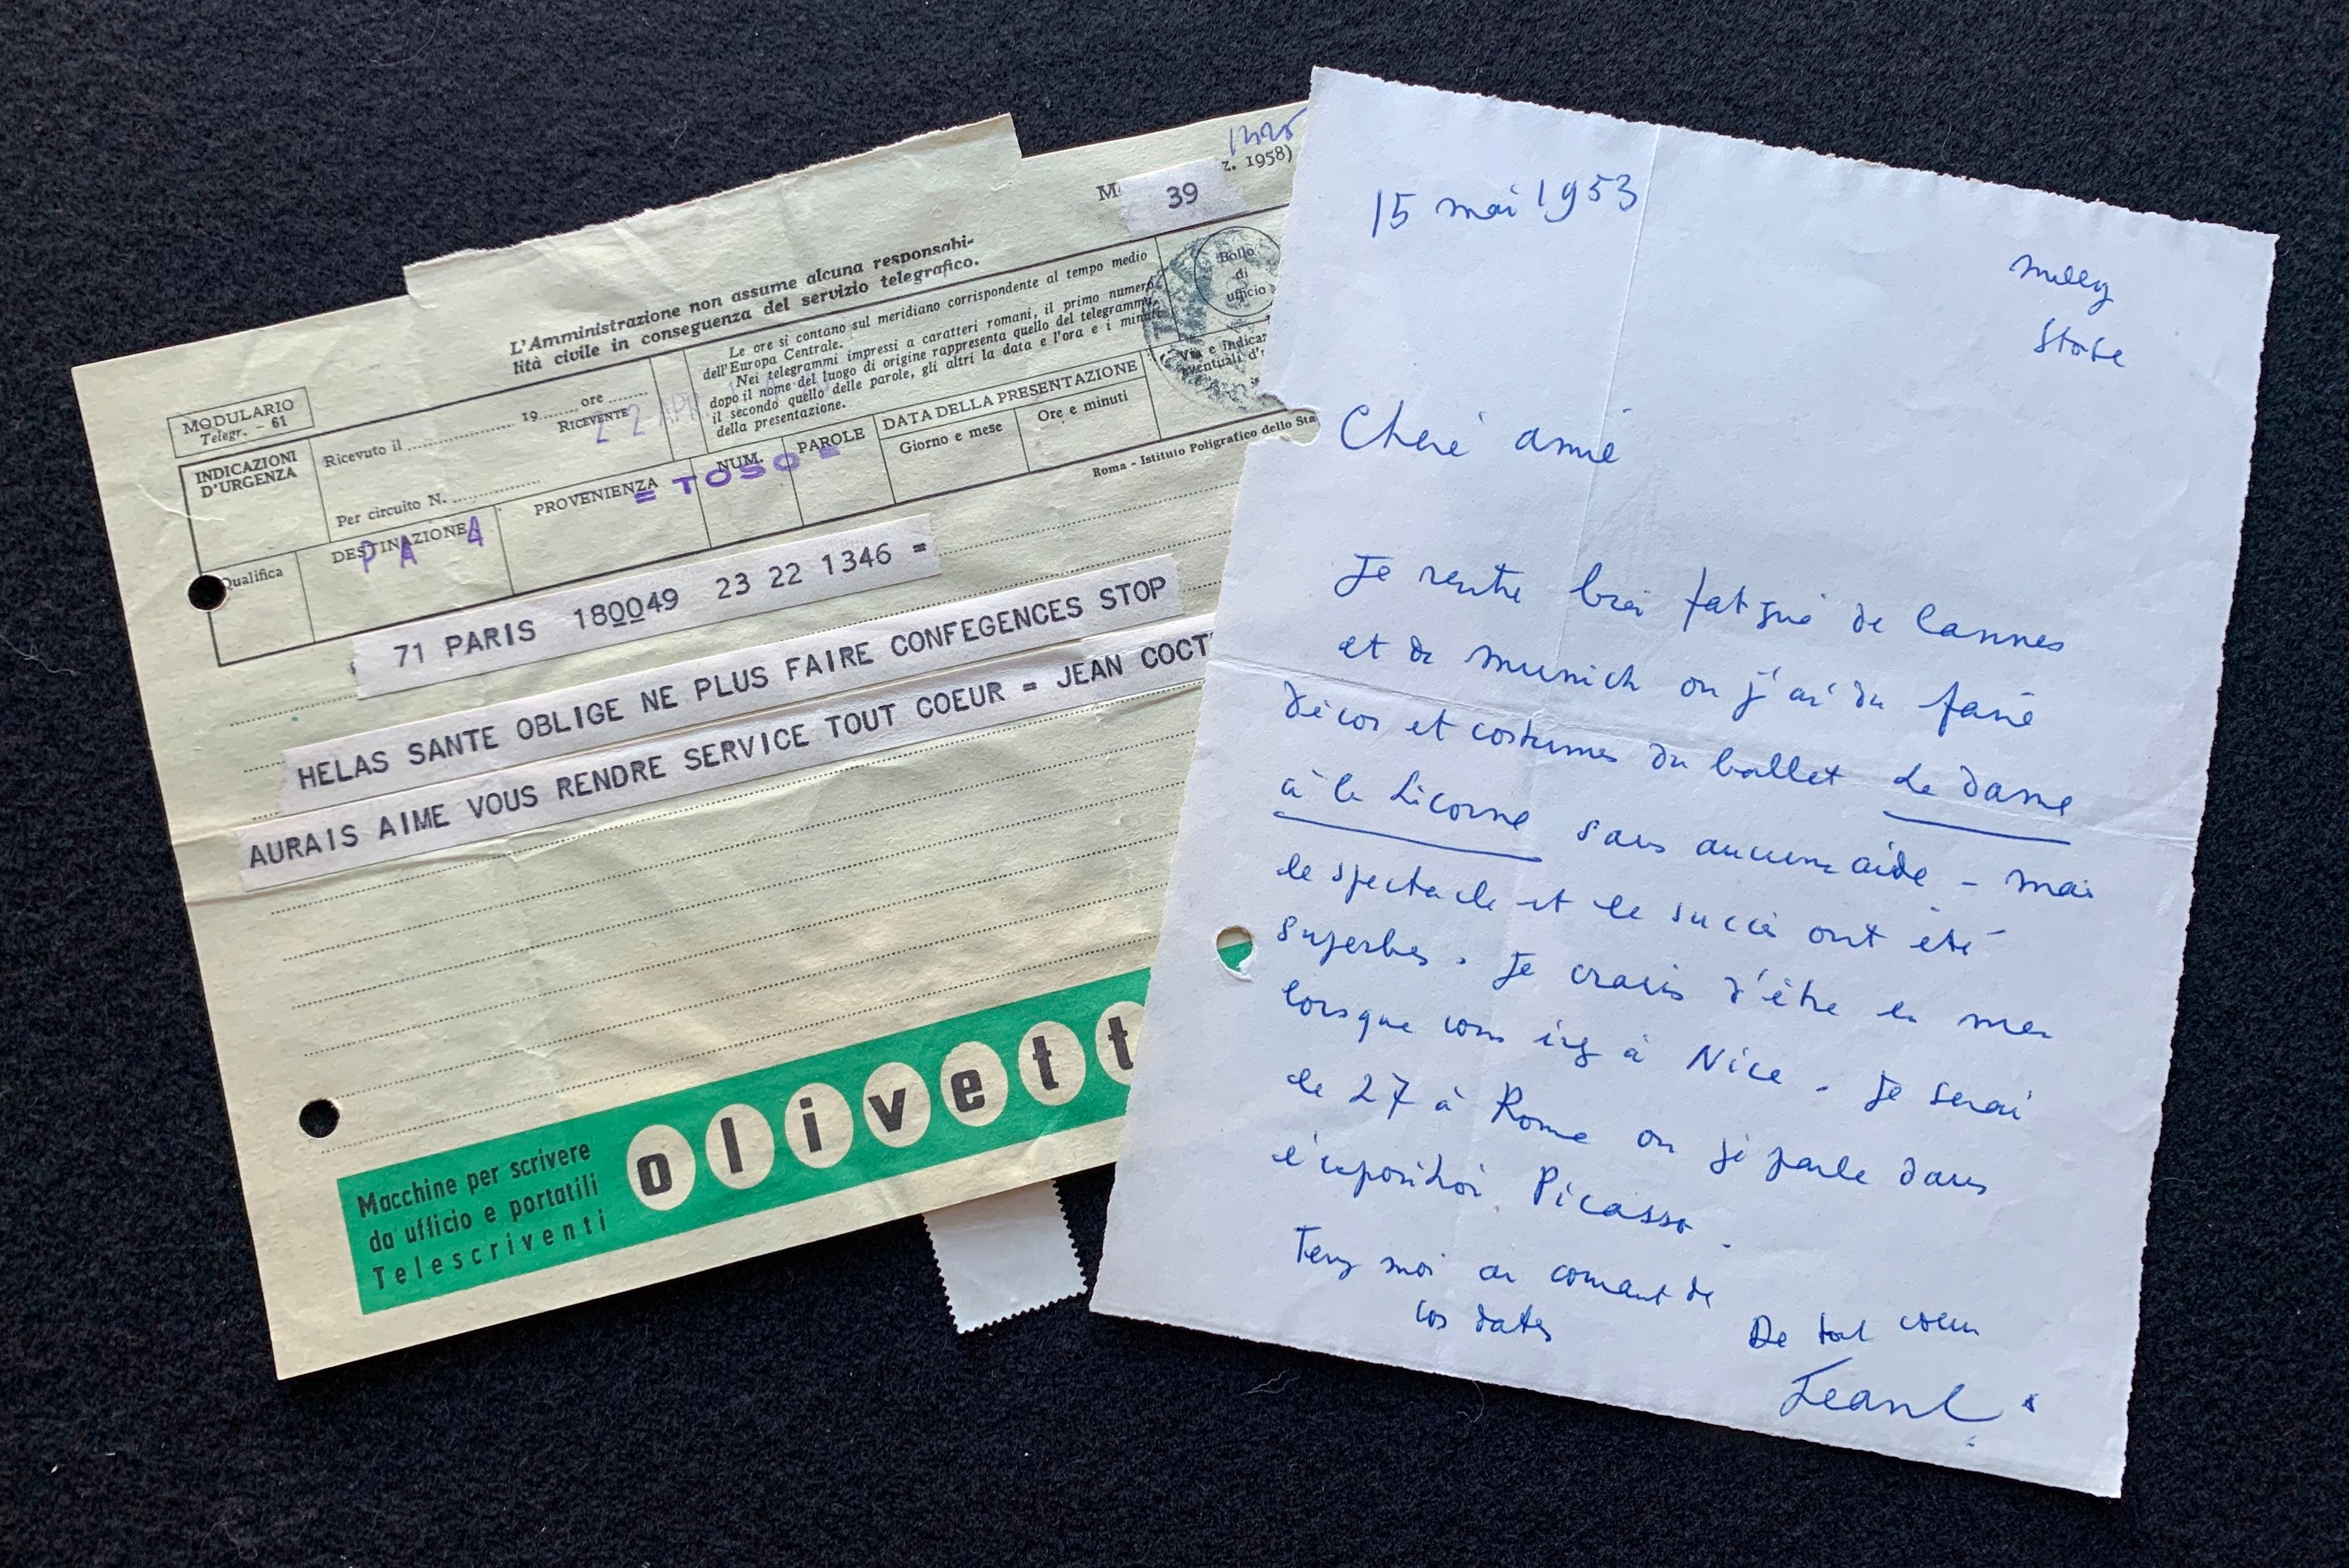 39
z. 1958)
L'Amministrazione non assume alcuna responsabi-
lità civile in conseguenza del servizio telegrafico.
MODULARIO
Telegr. - 61
INDICAZIONI
D'URGENZA
Ricevuto il 19 ore
RICEVENTE
Per circuito N.
Le ore si contano sul meridiano corrispondente al tempo medio
dell'Europa Centrale.
Nei telegrammi impressi a caratteri romani, il primo numero
dopo il nome del luogo di origine rappresenta quello del telegramma,
il secondo quello delle parole, gli altri la data e l'ora e i minuti
della presentazione.
Bollo
di
ufficio
Via e Indicaz
eventuali d'u
Qualifica
DESTINAZIONE
PROVENIENZA
NUM.
PAROLE
DATA DELLA PRESENTAZIONE
Giorno e mese
Ore e minuti
PA 4
= TOSO =
22 APR
Roma - Istituto Poligrafico dello Sta
71 PARIS 180049 23 22 1346 =
HELAS SANTE OBLIGE NE PLUS FAIRE CONFEGENCES STOP
AURAIS AIME VOUS RENDRE SERVICE TOUT COEUR = JEAN COCT
Macchine per scrivere
da ufficio e portatili
Telescriventi
olivett
15 mai 1953
Milly
S et O
Chère amie
Je rentre bien fatigué de Cannes
et de Munich ou j'ai du faire
décor et costumes du ballet La dame
à la Licorne sans aucune aide - mais
le spectacle et le succès ont été
superbes. Je crains d'être en mer
lorsque vous irez à Nice. Je serai
le 27 à Rome ou je parle dans
l'exposition Picasso.
Tenez moi au courant de
vos dates
De tout cœur
Jean